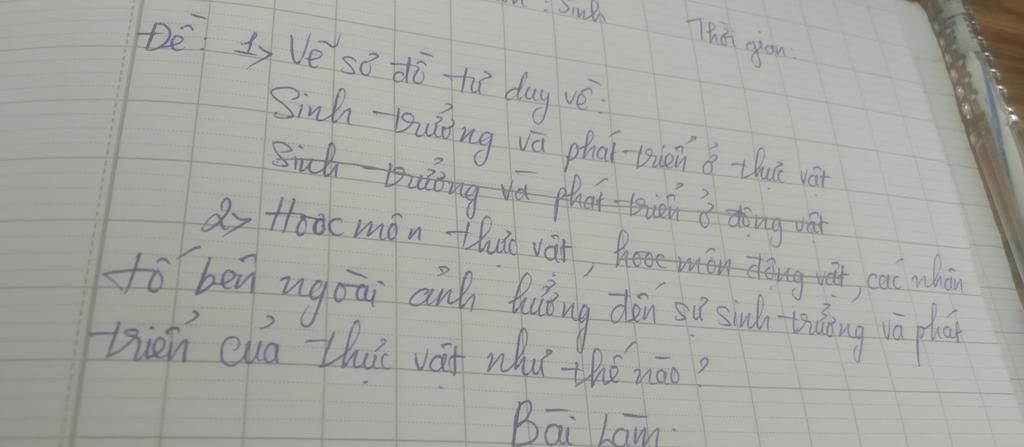 Sinh
Thời gian:
Đề: 1> Vẽ sơ đồ tư duy về:
Sinh trưởng và phát triển ở thực vật
Sinh trưởng và phát triển ở động vật
2> Hooc môn thực vật, hooc môn động vật, các nhân
tố bên ngoài ảnh hưởng đến sự sinh trưởng và phát
triển của thực vật như thế nào?
Bài Làm.